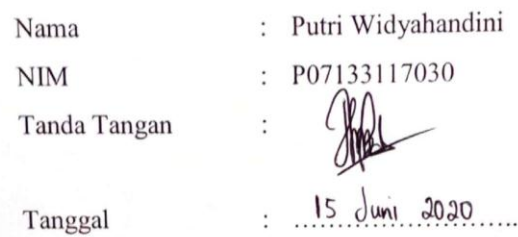 Nama : Putri Widyahandini
NIM : P07133117030
Tanda Tangan :
Tanggal : 15 Juni 2020